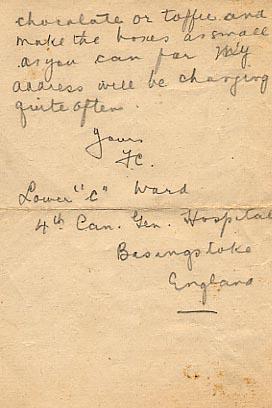 chocolate or toffee and
make the boxes as small
as you can for My
address will be changing
quite often.
Yours
FC.
Lower "C" Ward
4th Can. Gen. Hospital
Basingstoke
England